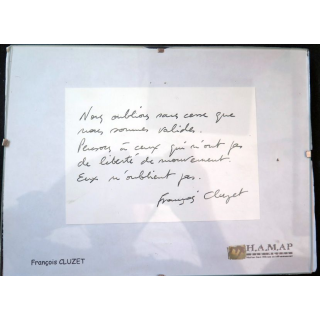 Nous oublions sans cesse que
nous sommes valides.
Pensons à ceux qui n'ont pas
de liberté de mouvement.
Eux n'oublient pas.
François Cluzet
François CLUZET
H.A.M.A.P